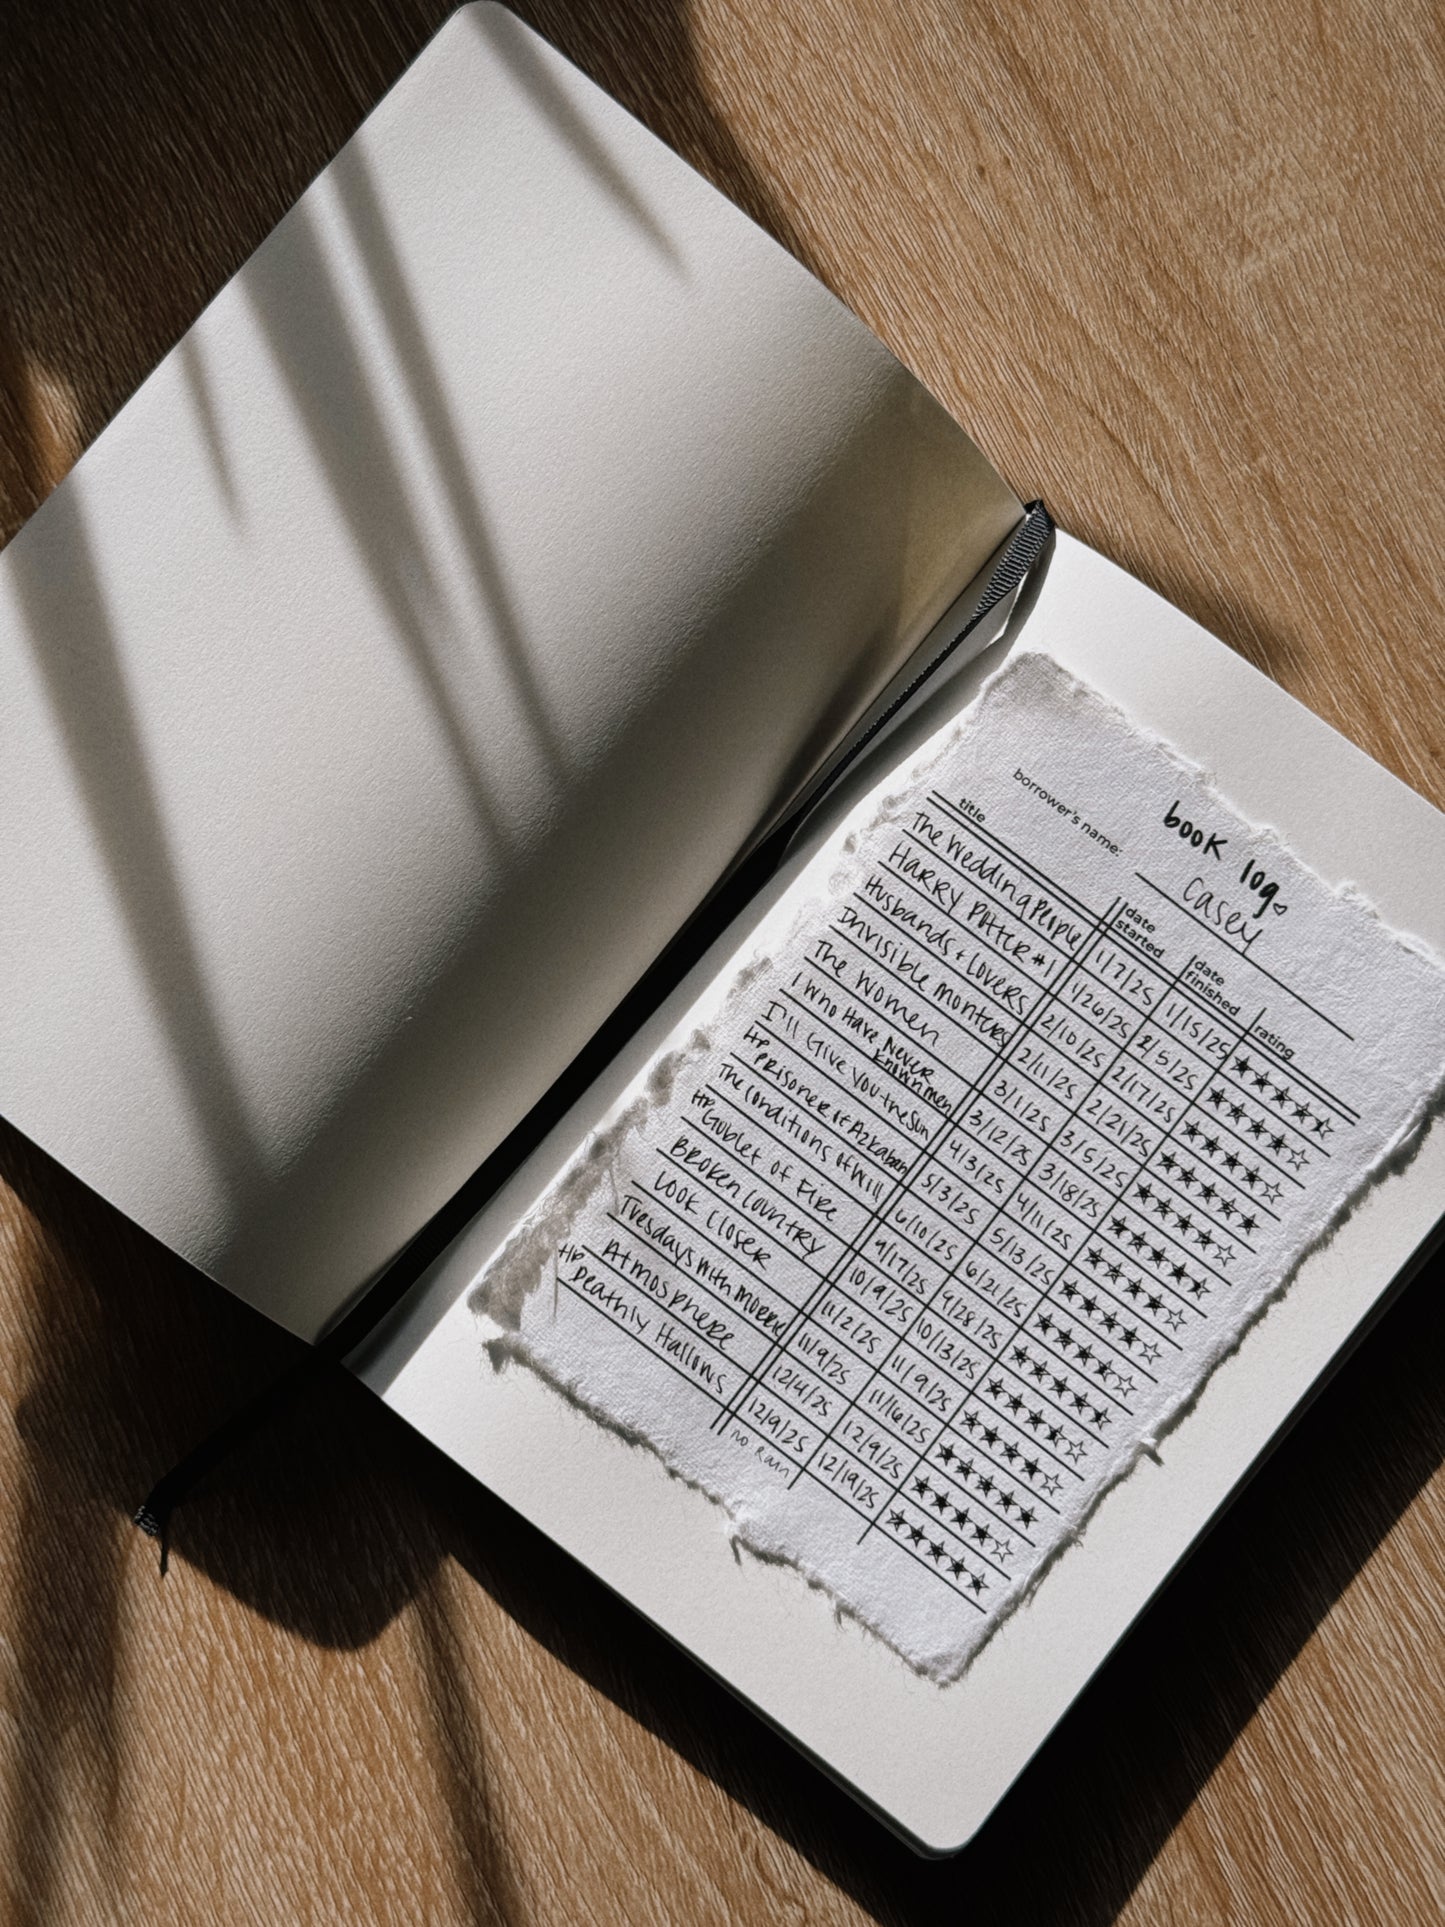 book log♡
borrower's name: Casey
title date started date finished rating
The Wedding People 1/7/25 1/15/25
Harry Potter #1 1/26/25 2/5/25
Husbands + Lovers 2/10/25 2/17/25
Invisible Monters 2/11/25 2/21/25
The Women 3/1/25 3/5/25
I Who Have Never Known men 3/12/25 3/18/25
I'll Give You the Sun 4/3/25 4/11/25
HP Prisoner of Azkaban 5/3/25 5/13/25
The Conditions of Will 6/10/25 6/21/25
HP Goblet of Fire 9/17/25 9/28/25
Broken Country 10/9/25 10/13/25
Look Closer 11/2/25 11/9/25
Tuesdays with Morrie 11/9/25 11/16/25
Atmosphere 12/4/25 12/9/25
HP Deathly Hallows 12/9/25 12/19/25
no rain